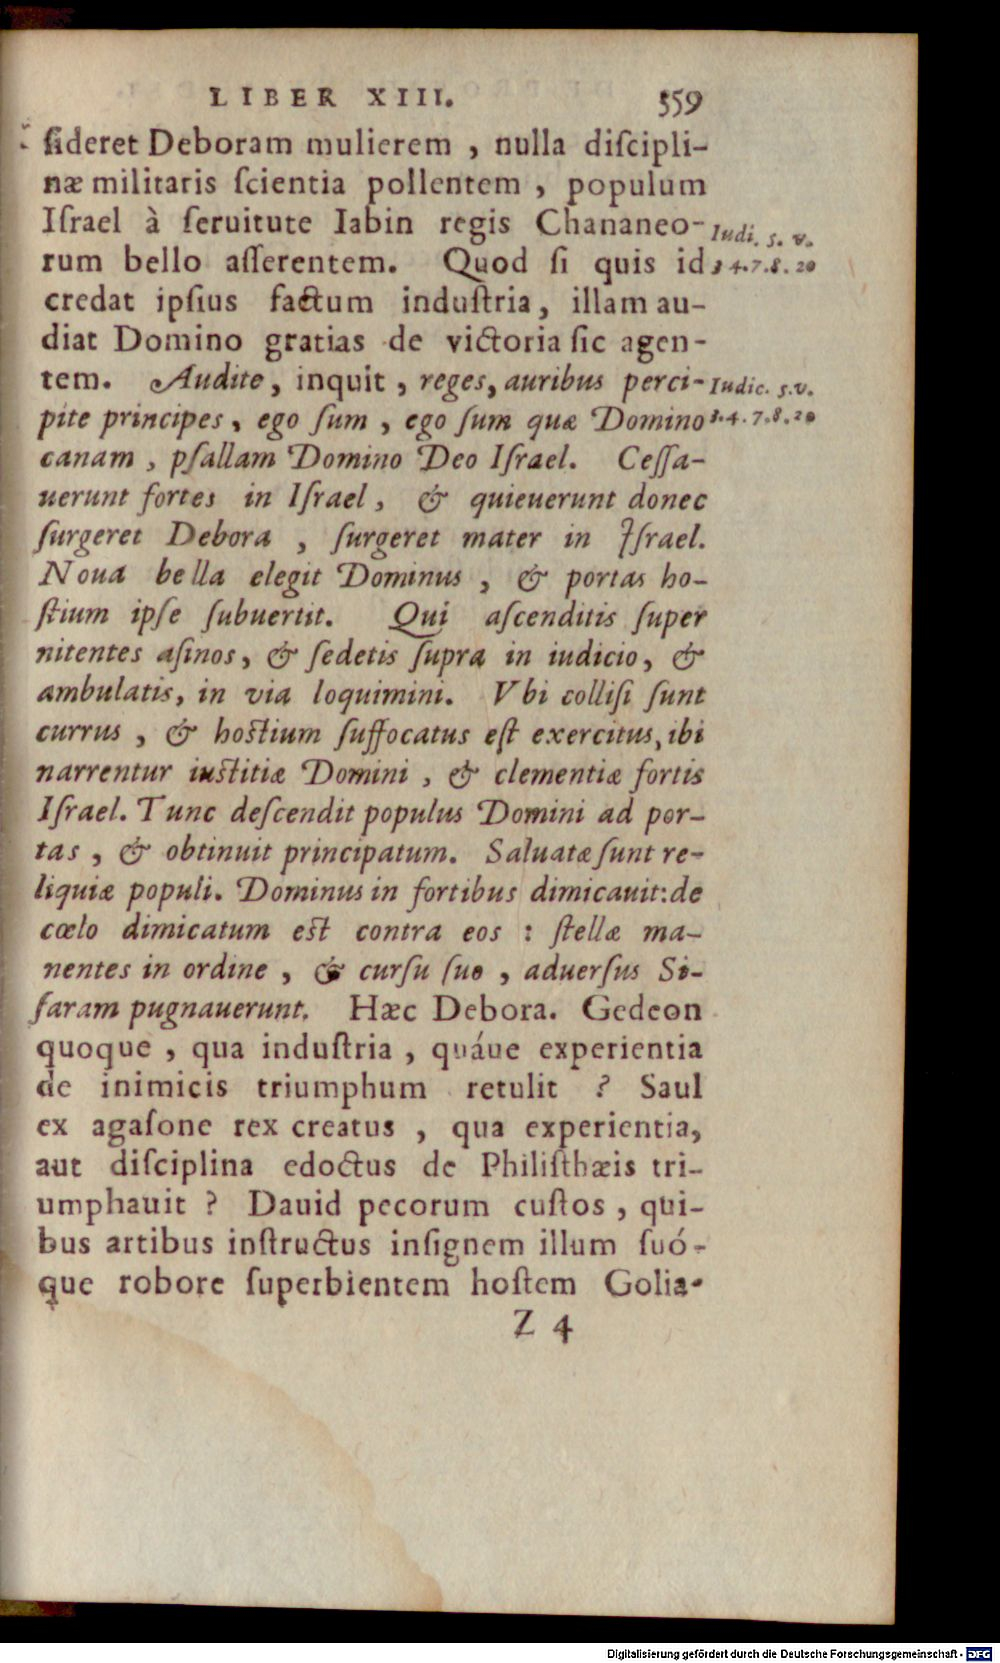 LIBER XIII. 559
ſideret Deboram mulierem , nulla diſcipli-
næ militaris ſcientia pollentem , populum
Iſrael à ſeruitute Iabin regis Chananeo-
Iudi. 5. v.
rum bello aſſerentem. Quod ſi quis id
3 4. 7. 8. 20
credat ipſius factum induſtria, illam au-
diat Domino gratias de victoria ſic agen-
tem. Audite, inquit, reges, auribus perci-
Iudic. 5. v.
pite principes, ego ſum, ego ſum quæ Domino
3. 4. 7. 8. 20
canam, pſallam Domino Deo Iſrael. Ceſſa-
uerunt fortes in Iſrael, & quieuerunt donec
ſurgeret Debora , ſurgeret mater in Iſrael.
Noua bella elegit Dominus , & portas ho-
ſtium ipſe ſubuertit. Qui aſcenditis ſuper
nitentes aſinos, & ſedetis ſupra in iudicio, &
ambulatis, in via loquimini. Vbi colliſi ſunt
currus , & hoſtium ſuffocatus eſt exercitus, ibi
narrentur iuſtitiæ Domini , & clementiæ fortis
Iſrael. Tunc deſcendit populus Domini ad por-
tas , & obtinuit principatum. Saluatæ ſunt re-
liquiæ populi. Dominus in fortibus dimicauit: de
cœlo dimicatum eſt contra eos : ſtellæ ma-
nentes in ordine , & curſu ſuo , aduerſus Si-
ſaram pugnauerunt. Hæc Debora. Gedeon
quoque , qua induſtria , quáue experientia
de inimicis triumphum retulit ? Saul
ex agaſone rex creatus , qua experientia,
aut diſciplina edoctus de Philiſthæis tri-
umphauit ? Dauid pecorum cuſtos , qui-
bus artibus inſtructus inſignem illum ſuó-
que robore ſuperbientem hoſtem Golia-
Z 4
Digitalisierung gefördert durch die Deutsche Forschungsgemeinschaft - DFG